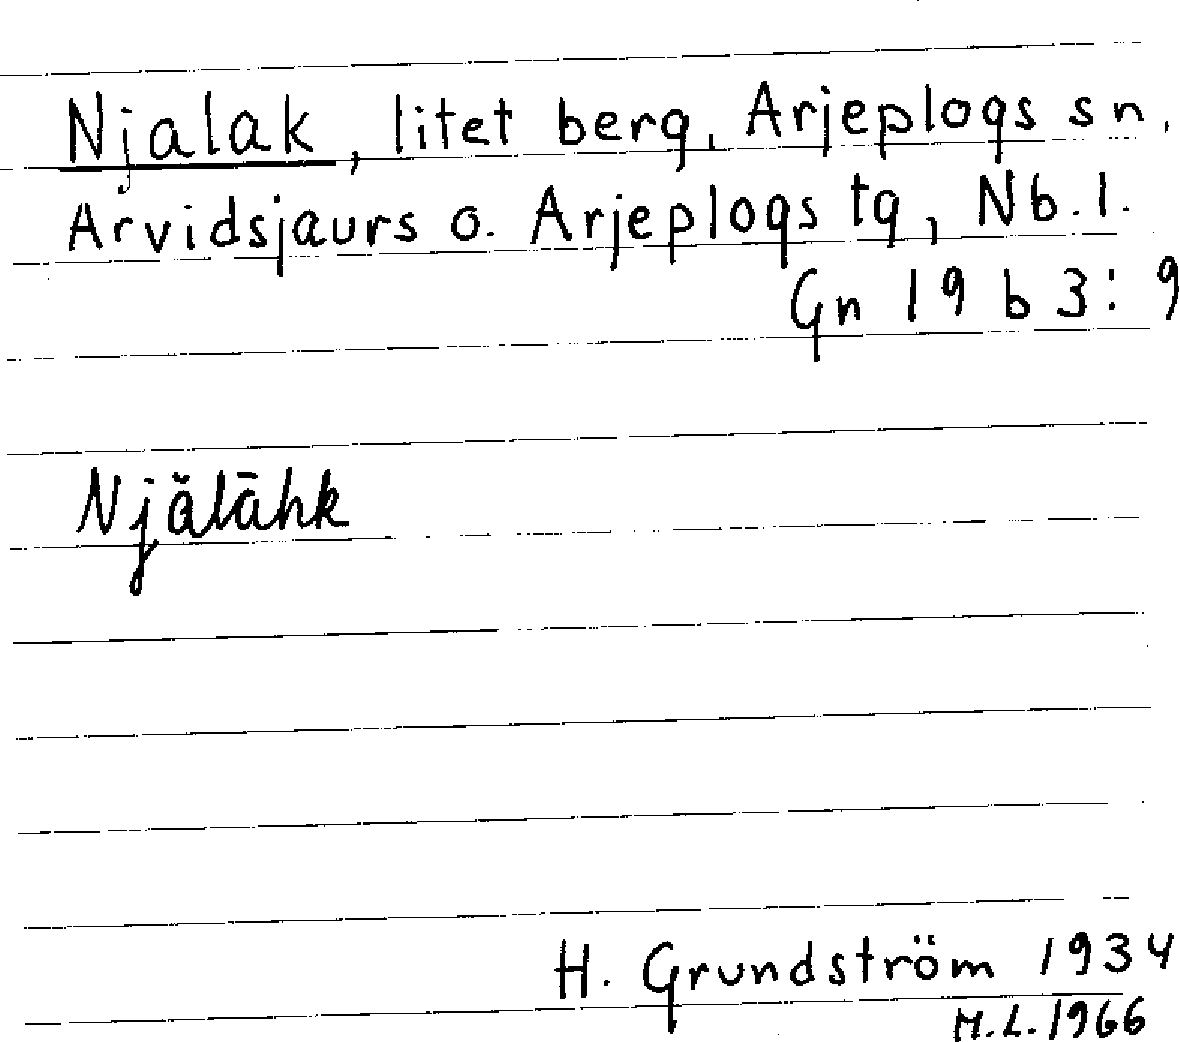 Njalak, litet berg, Arjeplogs sn,
Arvidsjaurs o. Arjeplogs tg, Nb.l.
Gn 19 b 3:9
Njǎlāhk
H. Grundström 1934
M.L. 1966